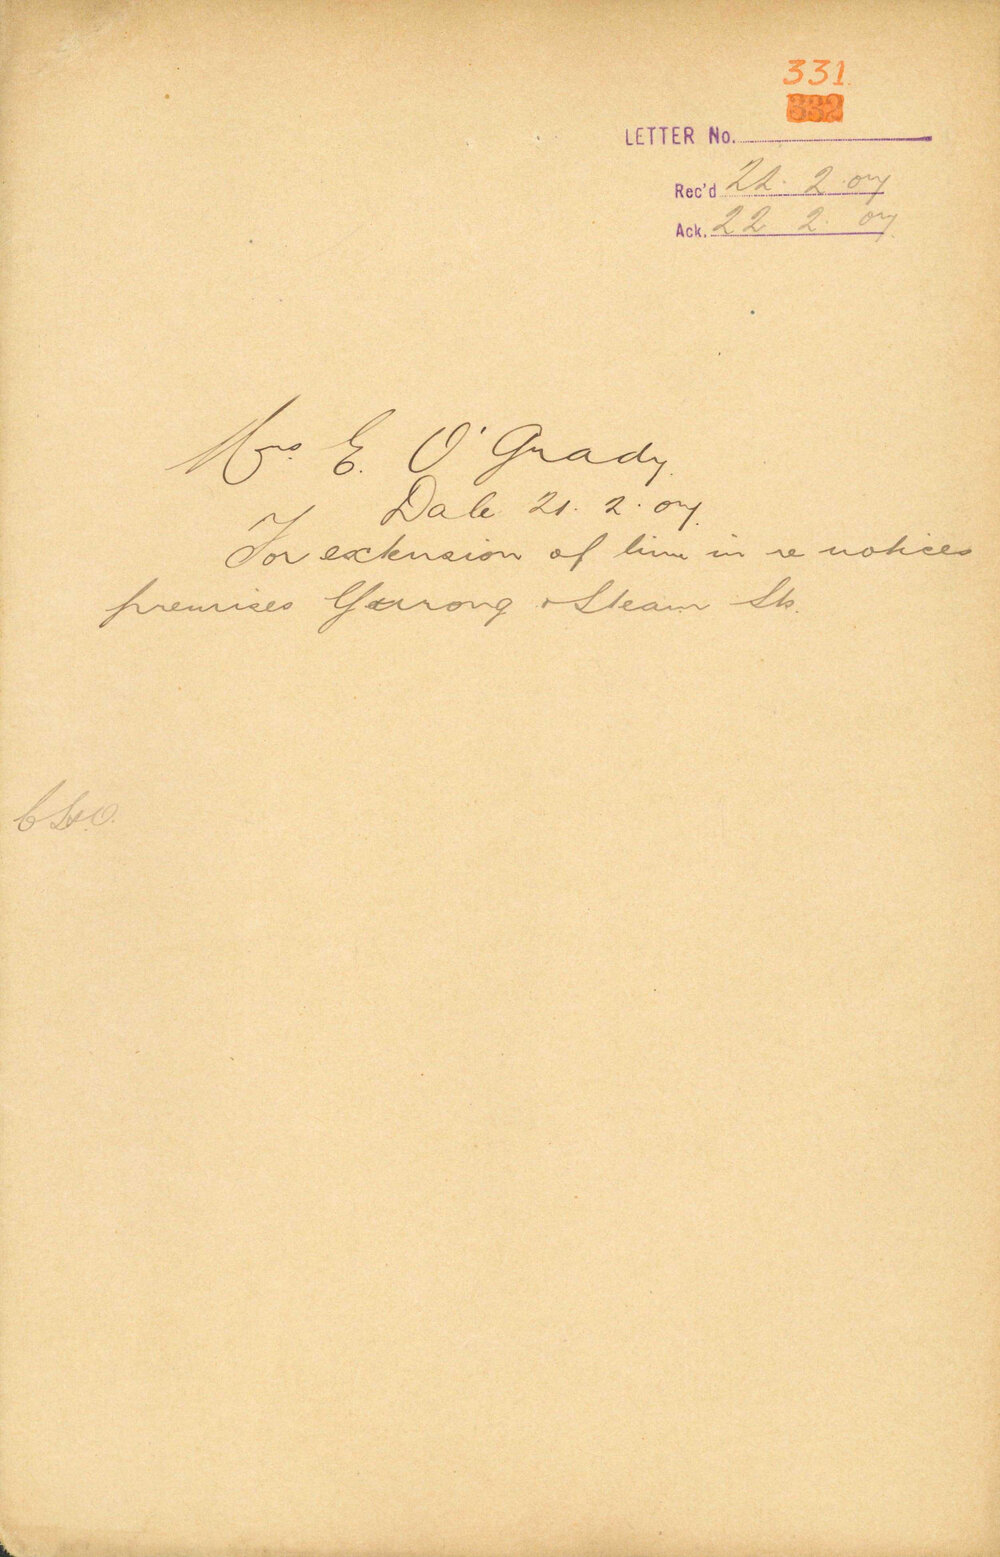 331
332
LETTER No.
Rec'd 22. 2. 07
Ack. 22 2. 07.
Mrs. E. O'Grady.
Date 21. 2. 07.
For extension of time in re notices
premises Yurong & Steam Sts.